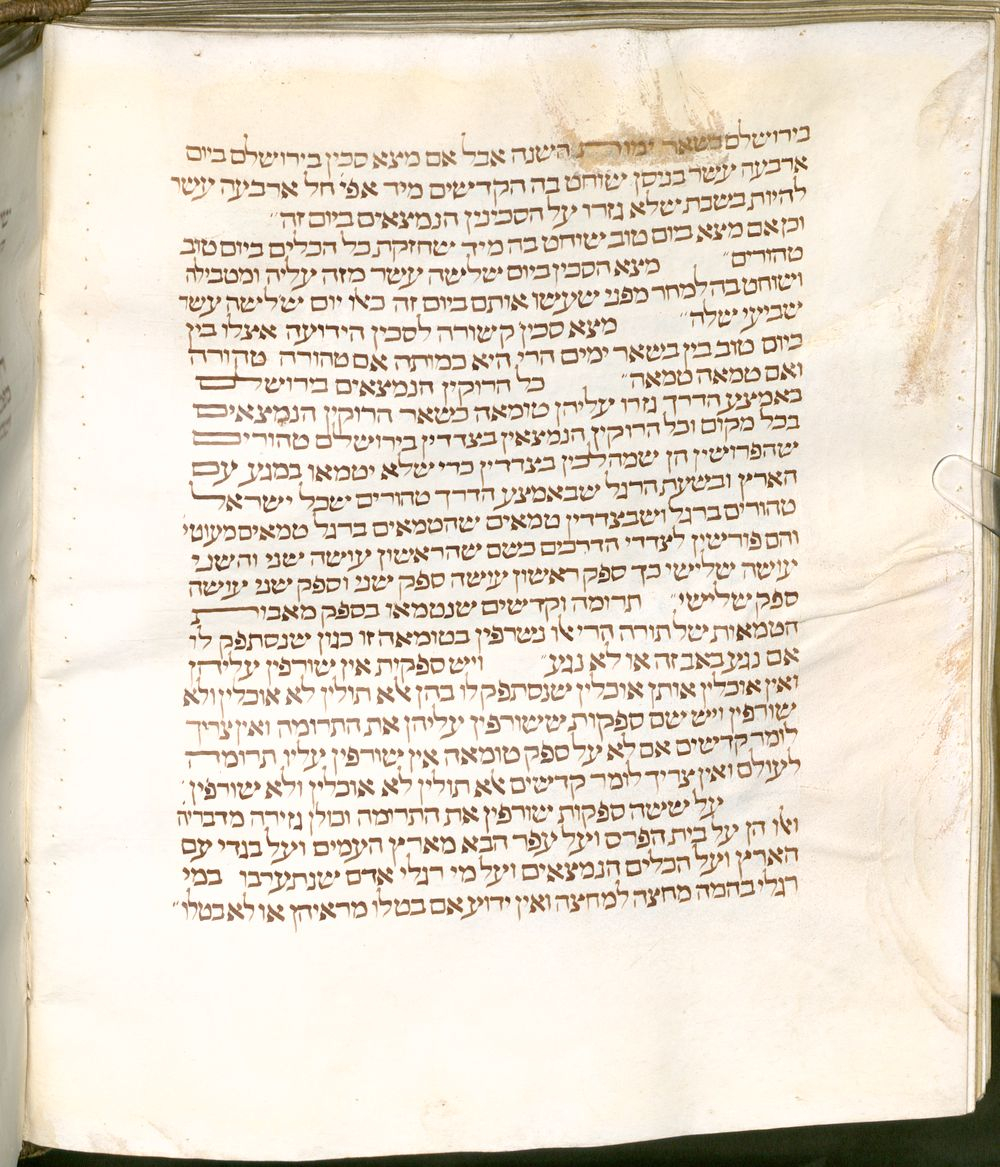 בירושלם בשאר ימות השנה אבל אם מצא סכין בירושלם ביום
ארבעה עשר בניסן שוחט בה הקדשים מיד אפי׳ חל ארבעה עשר
להיות בשבת שלא גזרו על הסכינין הנמצאים ביום זה״
וכן אם מצא ביום טוב שוחט בה מיד שחזקת כל הכלים ביום טוב
טהורים״ מצא הסכין ביום שלישה עשר מזה עליה ומטבילה
ושוחט בה למחר מפני שעשו אותם ביום זה כאלו יום שלישה עשר
שביעי שלה״ מצא סכין קשורה לסכין הידועה אצלו בין
ביום טוב בין בשאר ימים הרי היא כמותה אם טהורה טהורה
ואם טמאה טמאה״ כל הרוקין הנמצאים בירושלם
באמצע הדרך גזרו עליהן טומאה כשאר הרוקין הנמצאים
בכל מקום וכל הרוקין הנמצאין בצדדין בירושלם טהורים
שהפרושין הן שמהלכין בצדדין כדי שלא יטמאו במגע עם
הארץ ובשעת הרגל שבאמצע הדרך טהורים שכל ישראל
טהורים ברגל ושבצדדין טמאים שהטמאים ברגל טמאים מעוטי׳
והם פורישין לצדדי הדרכים כשם שהראשון עושה שני והשני
עושה שלישי כך ספק ראשון עושה ספק שני וספק שני עושה
ספק שלישי״ תרומה וקדשים שנטמאו בספק מאבות
הטמאות של תורה הרי אלו נשרפין בטומאה זו כגון שנסתפק לו
אם נגע באב זה או לא נגע״ ויש ספקות אין שורפין עליהן
ואין אוכלין אותן אוכלין שנסתפק לו בהן אלא תולין לא אוכלין ולא
שורפין ויש שם ספקות ששורפין עליהן את התרומה ואין צריך
לומר קדשים אם לא על ספק טומאה אין שורפין עליו תרומה
לעולם ואין צריך לומר קדשים אלא תולין לא אוכלין ולא שורפין׳
על ששה ספקות שורפין את התרומה וכולן גזירה מדבריה׳
ואלו הן על בית הפרס ועל עפר הבא מארץ העמים ועל בגדי עם
הארץ ועל הכלים הנמצאים ועל מי רגלי אדם שנתערבו במי
רגלי בהמה מחצה למחצה ואין ידוע אם בטלו מראיהן או לא בטלו״